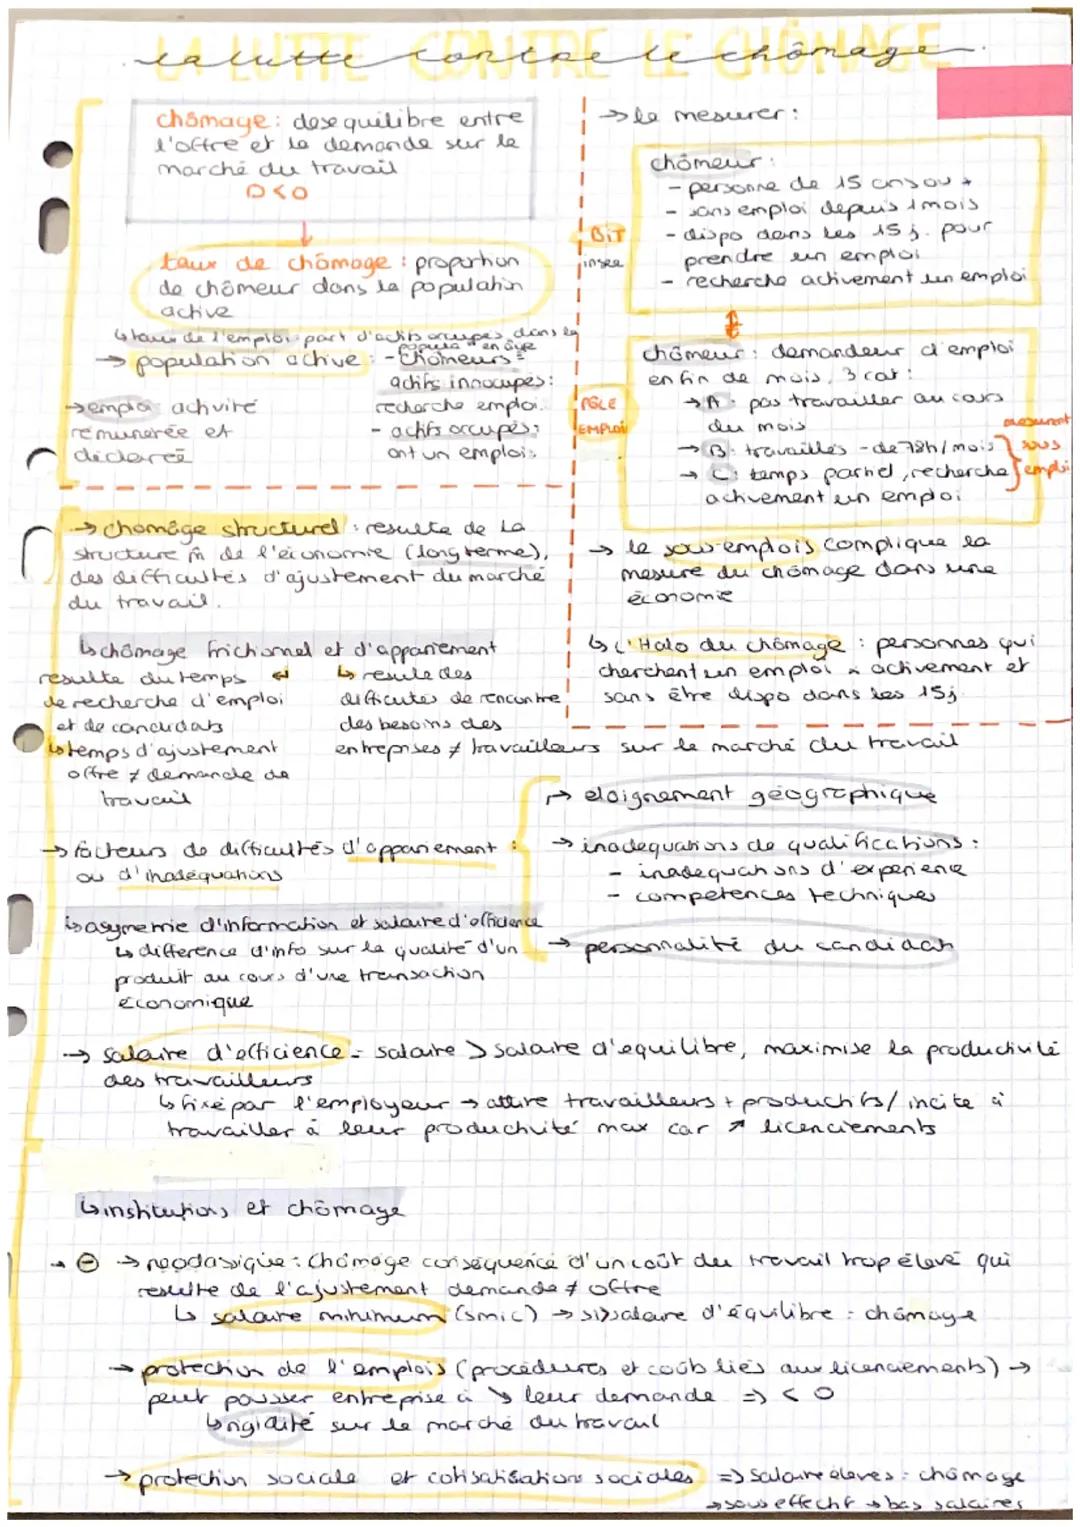 LA LUTTE CONTRE LE CHÔMAGE
la lutte contre le chômage
chômage : desequilibre entre
l'offre et la demande sur le
marché du travail
D<O
taux de chômage : proportion
de chômeur dans la population
active
↳ taux de l'emploi : part d'actifs occupés dans la
popula° en âge
→ population active : - Chômeurs =
actifs innocupés :
recherche emploi.
- actifs occupés :
ont un emplois
→ emploi activité
rémunérée et
déclarée
→ le mesurer :
BIT
insee
chômeur :
- personne de 15 ans ou +
- sans emploi depuis 1 mois
- dispo dans les 15 j. pour
prendre un emploi
- recherche activement un emploi
PÔLE
EMPLOI
chômeur : demandeur d'emploi
en fin de mois, 3 cat :
→ A : pas travailler au cours
du mois
→ B : travaillés - de 78h/mois
→ C : temps partiel, recherche
activement un emploi
mesurent
sous
emploi
→ le sous-emplois complique la
mesure du chômage dans une
économie
↳ L'Halo du chômage : personnes qui
cherchent un emploi activement et
sans être dispo dans les 15j
→ chomâge structurel : resulte de la
structure m de l'économie (long terme),
des difficultés d'ajustement du marché
du travail.
↳ chômage frictionnel et d'appariement
resulte du temps
de recherche d'emploi
et de candidats
↳ temps d'ajustement
offre ≠ demande de
travail
↳ resulte des
difficultés de rencontre
des besoins des
entreprises ≠ travailleurs sur le marché du travail
→ facteurs de difficultés d'appariement :
ou d'inadéquations
→ eloignement géographique
→ inadequations de qualifications :
- inadequations d'experience
- competences techniques
→ personnalité du candidat
↳ asymetrie d'information et salaire d'efficience
↳ difference d'info sur la qualité d'un
produit au cours d'une transaction
économique
→ Salaire d'efficience = salaire > salaire d'equilibre, maximise la productivité
des travailleurs
↳ fixé par l'employeur → attire travailleurs + productifs / incite à
travailler à leur productivité max car ↗ licenciements
↳ institutions et chômage
→ ⊖ → neoclassique : Chômage conséquence d'un coût du travail trop élevé qui
resulte de l'ajustement demande ≠ offre
↳ salaire minimum (smic) → si > salaire d'équilibre : chômage
→ protection de l'emplois (procédures et coûts liés aux licenciements) →
peut pousser entreprise à ↘ leur demande => < O
↳ rigidité sur le marché du travail
→ protection sociale et cotisatisations sociales => Salaire élevés : chômage
→ sous effectif → bas salaires